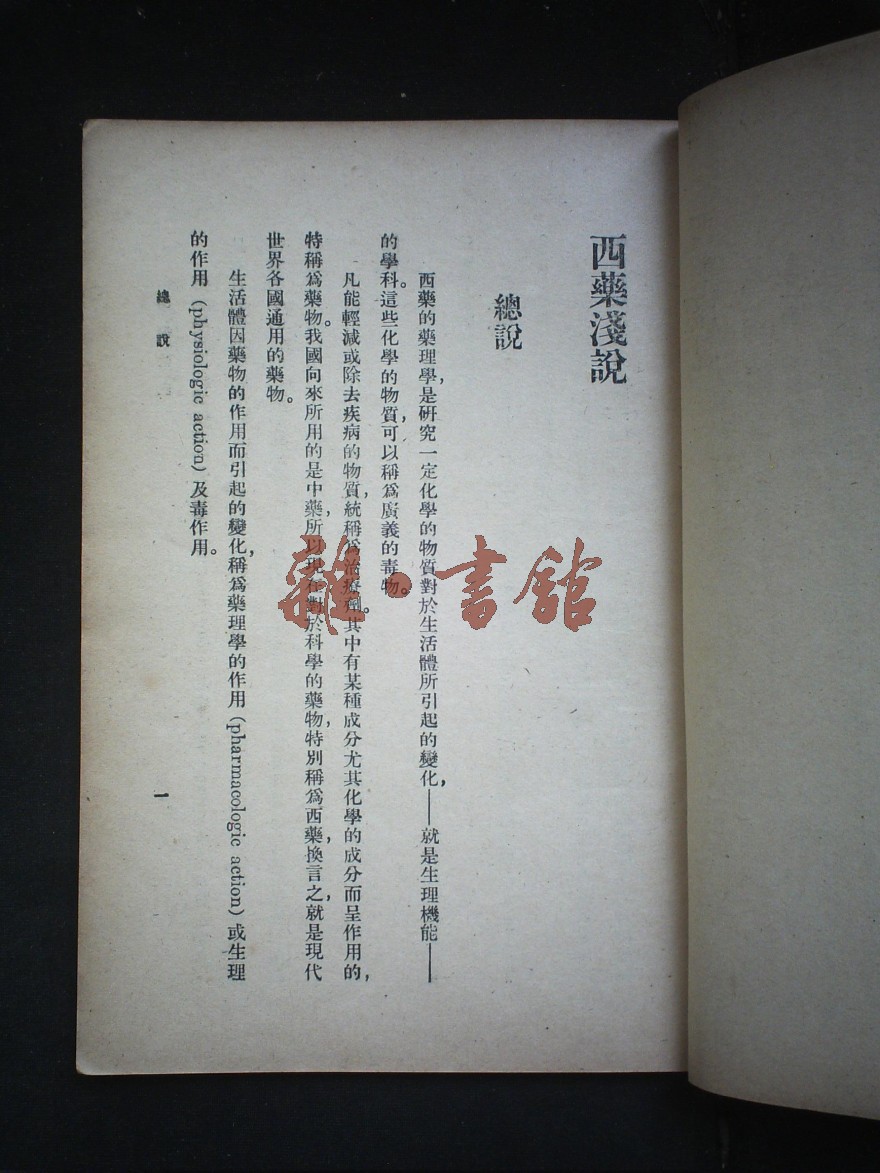 西藥淺說
總說
西藥的藥理學，是研究一定化學的物質對於生活體所引起的變化，——就是生理機能——
的學科。這些化學的物質，可以稱爲廣義的毒物。
凡能輕減或除去疾病的物質，統稱爲治療劑。其中有某種成分尤其化學的成分而呈作用的，
特稱爲藥物。我國向來所用的是中藥，所以現在對於科學的藥物，特別稱爲西藥，換言之，就是現代
世界各國通用的藥物。
生活體因藥物的作用而引起的變化，稱爲藥理學的作用 (pharmacologic action) 或生理
的作用 (physiologic action) 及毒作用。
總說
一
雜·書館